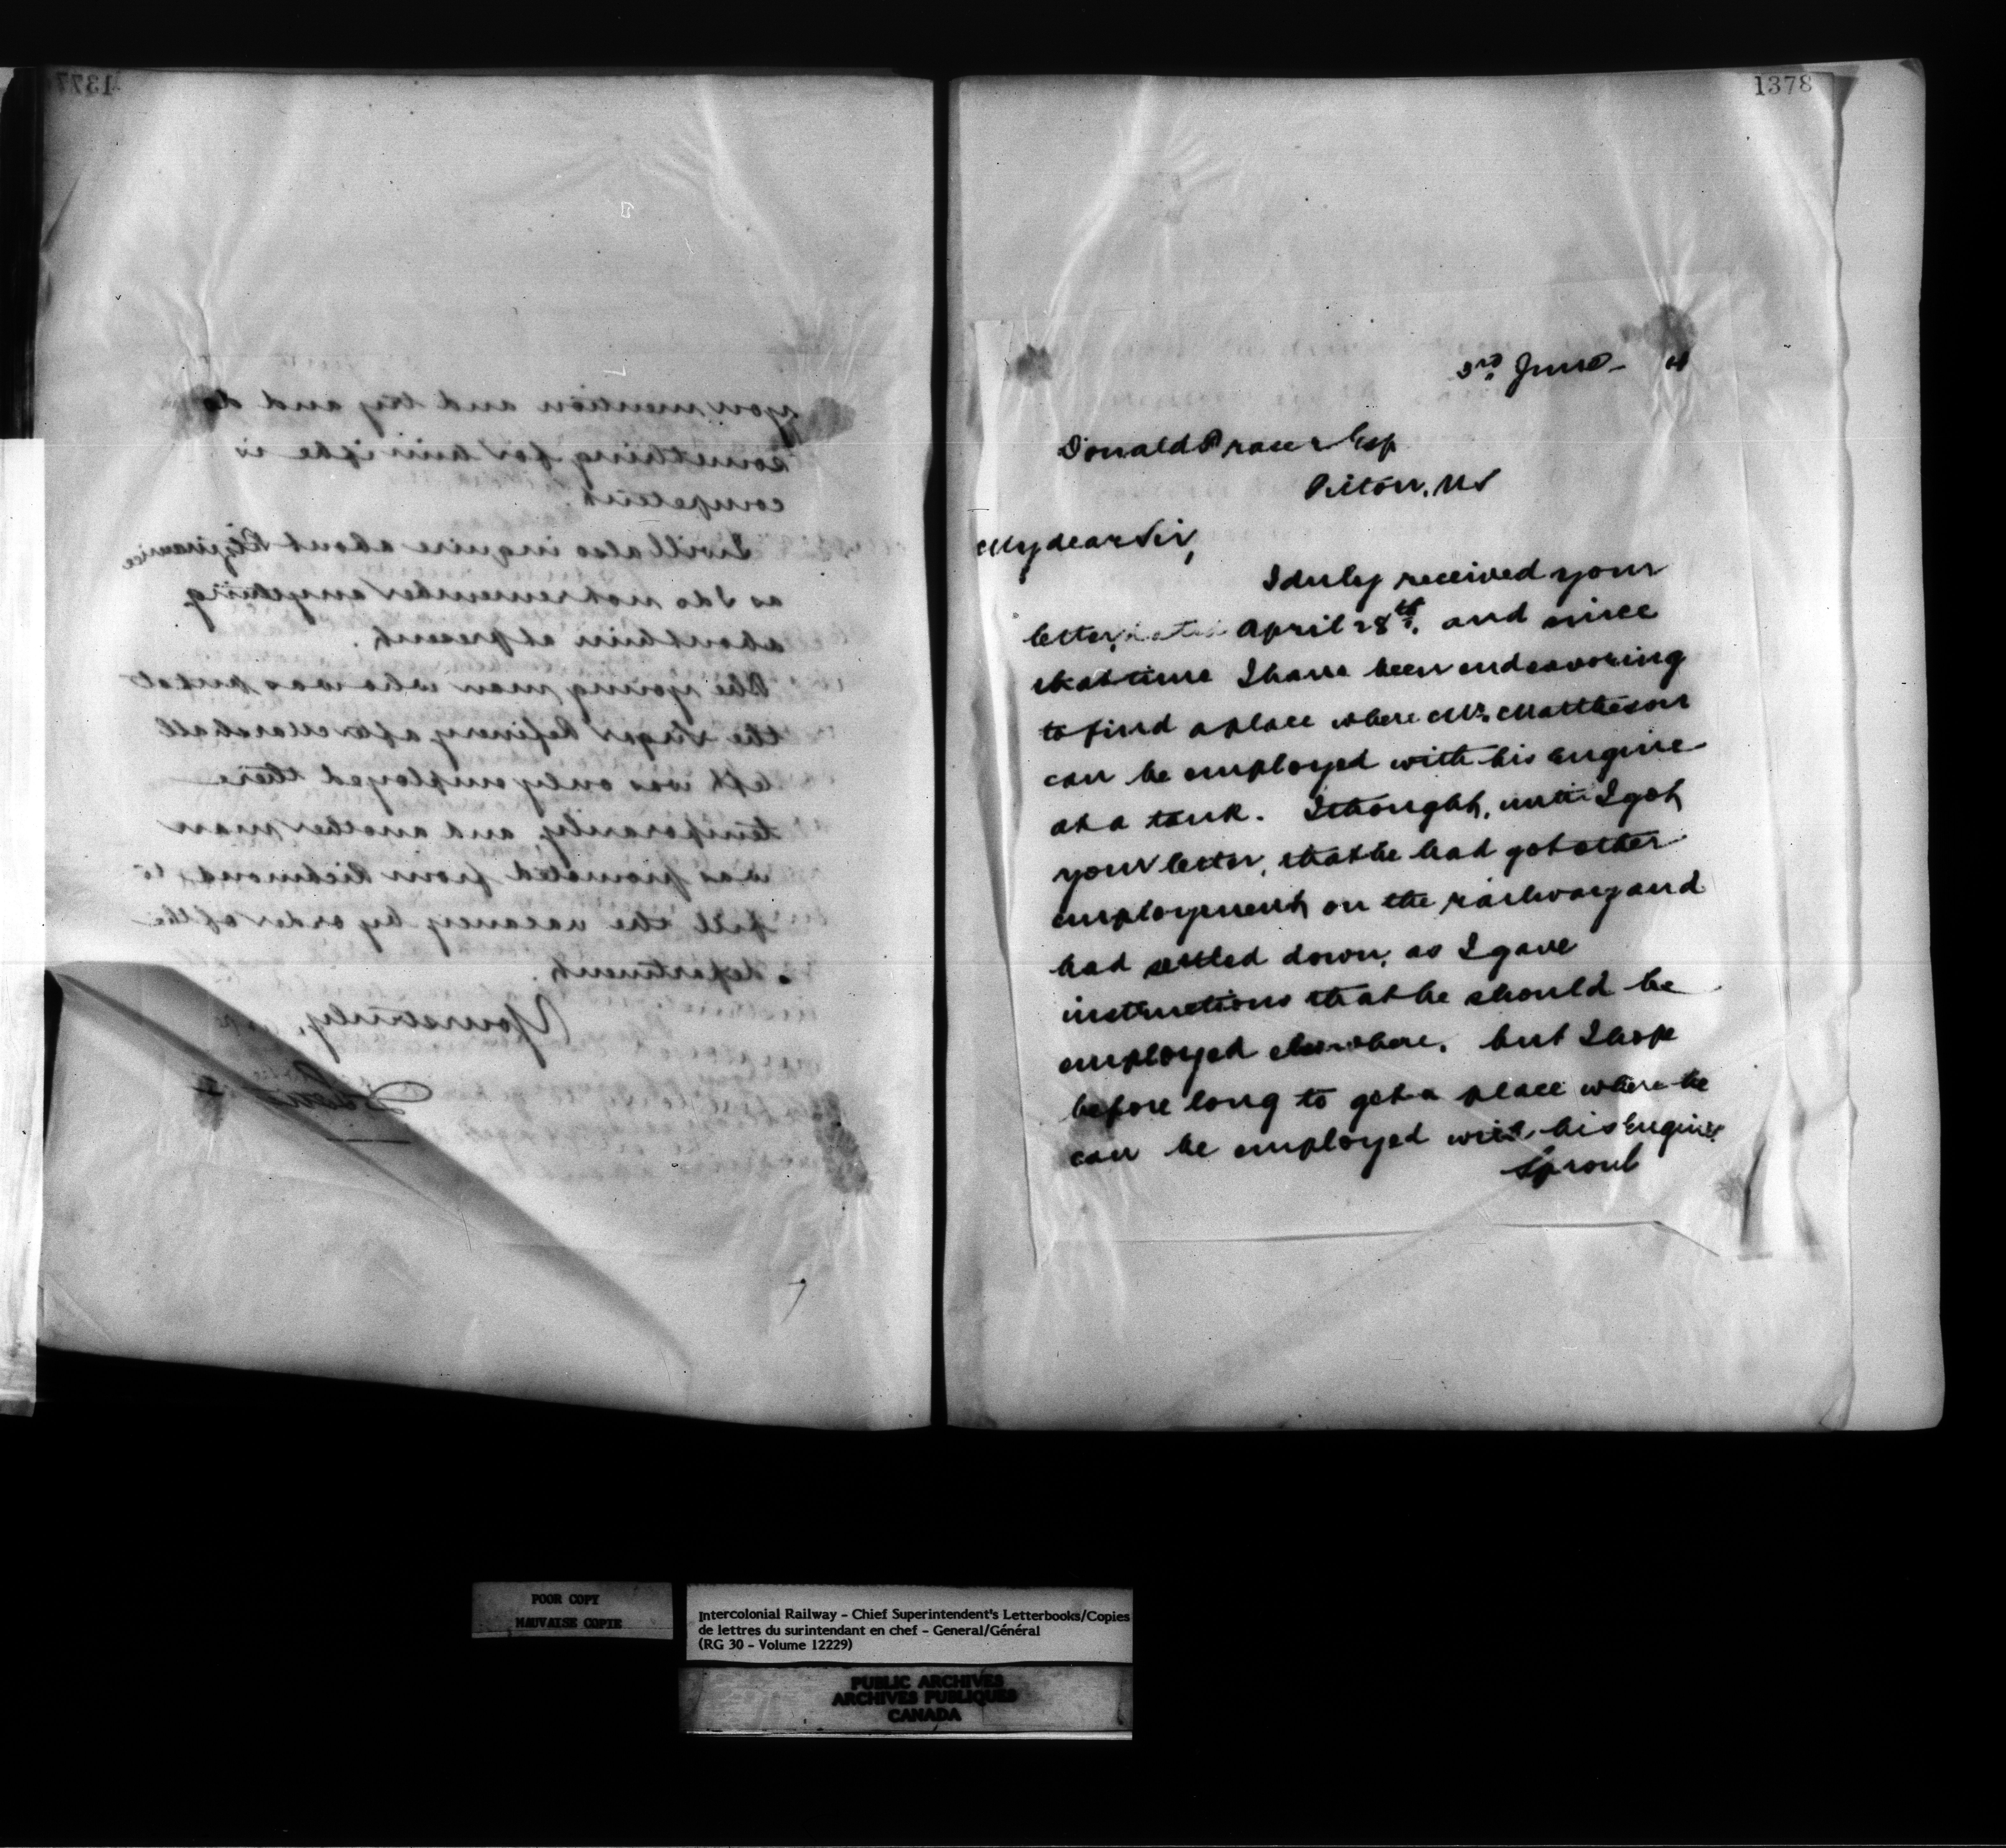 1377
you mention and try and do
something for him if he is
competent.
I will also inquire about
as I do not remember anything
about him at present.
The young man who was put at
the Sugar Refinery after Marshall
left was only employed there
temporarily, and another man
was promoted from Richmond to
fill the vacancy by order of the
department.
Yours truly,
1378
3rd June
Donald Fraser Esq
Pictou, NS
My dear Sir,
I duly received your
letter, dated April 28th, and since
that time I have been endeavoring
to find a place where Mr. Mattheson
can be employed with his engine
at a tank. I thought, until I got
your letter, that he had got other
employment on the railway and
had settled down, as I gave
instructions that he should be
employed elsewhere, but I hope
before long to get a place where he
can be employed with his Engine
POOR COPY
MAUVAISE COPIE
Intercolonial Railway - Chief Superintendent's Letterbooks/Copies
de lettres du surintendant en chef - General/Général
(RG 30 - Volume 12229)
PUBLIC ARCHIVES
ARCHIVES PUBLIQUES
CANADA